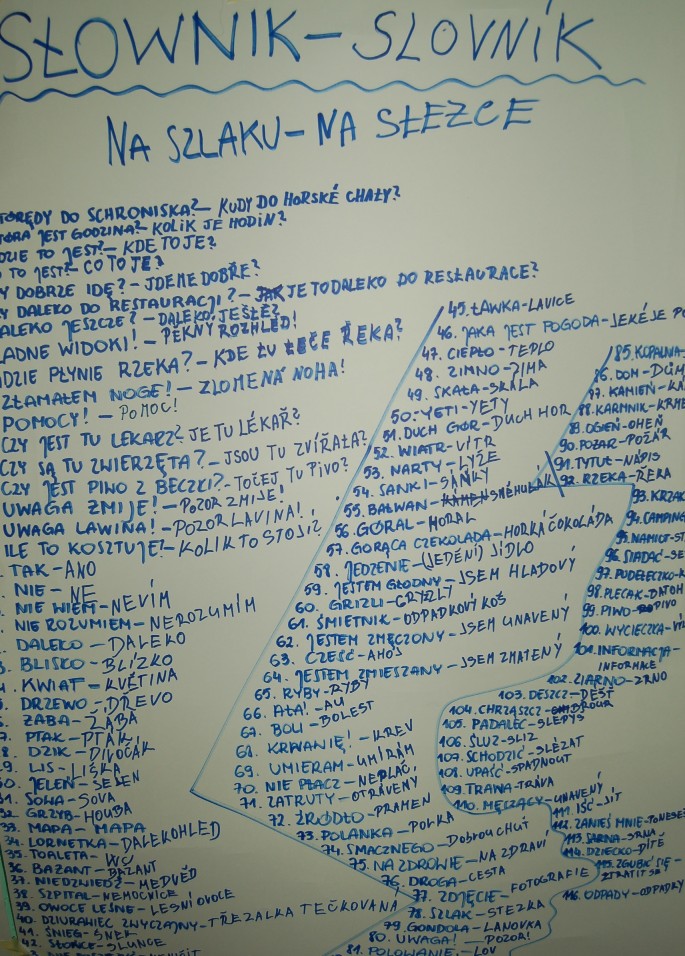 SŁOWNIK - SLOVNÍK
NA SZLAKU - NA STEZCE
TORĘDY DO SCHRONISKA? - KUDY DO HORSKÉ CHATY?
TÓRA JEST GODZINA? - KOLIK JE HODIN?
DZIE TO JEST? - KDE TO JE?
O TO JEST? - CO TO JE?
Y DOBRZE IDĘ? - JDEME DOBŘE?
Y DALEKO DO RESTAURACJI? - JE TO DALEKO DO RESTAURACE?
ALEKO JESZCZE? - DALEKO JEŠTĚ?
ŁADNE WIDOKI! - PĚKNÝ ROZHLED!
DZIE PŁYNIE RZEKA? - KDE TU TEČE ŘEKA?
ZŁAMAŁEM NOGĘ! - ZLOMENÁ NOHA!
POMOCY! - POMOC!
CZY JEST TU LEKARZ? - JE TU LÉKAŘ?
CZY SĄ TU ZWIERZĘTA? - JSOU TU ZVÍŘATA?
CZY JEST PIWO Z BECZKI? - TOČEJ TU PIVO?
UWAGA ŻMIJE! - POZOR ZMIJE!
UWAGA LAWINA! - POZOR LAVINA!
ILE TO KOSZTUJE? - KOLIK TO STOJÍ?
TAK - ANO
NIE - NE
NIE WIEM - NEVÍM
NIE ROZUMIEM - NEROZUMÍM
DALEKO - DALEKO
BLISKO - BLÍZKO
KWIAT - KVĚTINA
DRZEWO - DŘEVO
ŻABA - ŽÁBA
PTAK - PTÁK
DZIK - DIVOČÁK
LIS - LIŠKA
JELEŃ - JELEN
SOWA - SOVA
GRZYB - HOUBA
33. MAPA - MAPA
34. LORNETKA - DALEKOHLED
35. TOALETA - WC
36. BAŻANT - BAŽANT
37. NIEDŹWIEDŹ - MEDVĚD
38. SZPITAL - NEMOCNICE
39. OWOCE LEŚNE - LESNÍ OVOCE
40. DZIURAWIEC ZWYCZAJNY - TŘEZALKA TEČKOVANÁ
41. ŚNIEG - SNĚH
42. SŁOŃCE - SLUNCE
45. ŁAWKA - LAVICE
46. JAKA JEST POGODA - JEKÉ JE PO
47. CIEPŁO - TEPLO
48. ZIMNO - ZIMA
49. SKAŁA - SKÁLA
50. YETI - YETY
51. DUCH GÓR - DUCH HOR
52. WIATR - VÍTR
53. NARTY - LYŽE
54. SANKI - SÁŇKY
55. BAŁWAN - SNĚHULÁK
56. GÓRAL - HORAL
57. GORĄCA CZEKOLADA - HORKÁ ČOKOLÁDA
58. JEDZENIE - (JEDĚNÍ) JÍDLO
59. JESTEM GŁODNY - JSEM HLADOVÝ
60. GRIZLI - GRYZLY
61. ŚMIETNIK - ODPADKOVÝ KOŠ
62. JESTEM ZMĘCZONY - JSEM UNAVENÝ
63. CZEŚĆ - AHOJ
64. JESTEM ZMIESZANY - JSEM ZMATENÝ
65. RYBY - RYBY
66. AŁA! - AU
67. BOLI - BOLEST
68. KRWAWIĘ! - KREV
69. UMIERAM - UMÍRÁM
70. NIE PŁACZ - NEPLAČ
71. ZATRUTY - OTRÁVENÝ
72. ŹRÓDŁO - PRAMEN
73. POLANKA - POLKA
74. SMACZNEGO - DOBROU CHUŤ
75. NA ZDROWIE - NA ZDRAVÍ
76. DROGA - CESTA
77. ZDJĘCIE - FOTOGRAFIE
78. SZLAK - STEZKA
79. GONDOLA - LANOVKA
80. UWAGA! - POZOR!
81. POLOWANIE - LOV
85. KOPALNIA
86. DOM - DŮM
87. KAMIEŃ - KA
88. KARMNIK - KRME
89. OGIEŃ - OHEŇ
90. POŻAR - POŽÁR
91. TYTUŁ - NÁPIS
92. RZEKA - ŘEKA
93. KRZAK
94. CAMPING
95. NAMIOT - ST
96. SIADAĆ - SE
97. PUDEŁECZKO - K
98. PLECAK - BATOH
99. PIWO - PIVO
100. WYCIECZKA - VÝ
101. INFORMACJA - INFORMACE
102. ZIARNO - ZRNO
103. DESZCZ - DÉŠŤ
104. CHRZĄSZCZ - BROUK
105. PADALEC - SLEPÝŠ
106. ŚLUZ - SLIZ
107. SCHODZIĆ - SLÉZAT
108. UPAŚĆ - SPADNOUT
109. TRAWA - TRÁVA
110. MĘCZĄCY - UNAVENÝ
111. IŚĆ - JÍT
112. ZANIEŚ MNIE - TO NESEŠ
113. SARNA - SRNA
114. DZIECKO - DÍTĚ
115. ZGUBIĆ SIĘ - ZTRATIT SA
116. ODPADY - ODPADKY